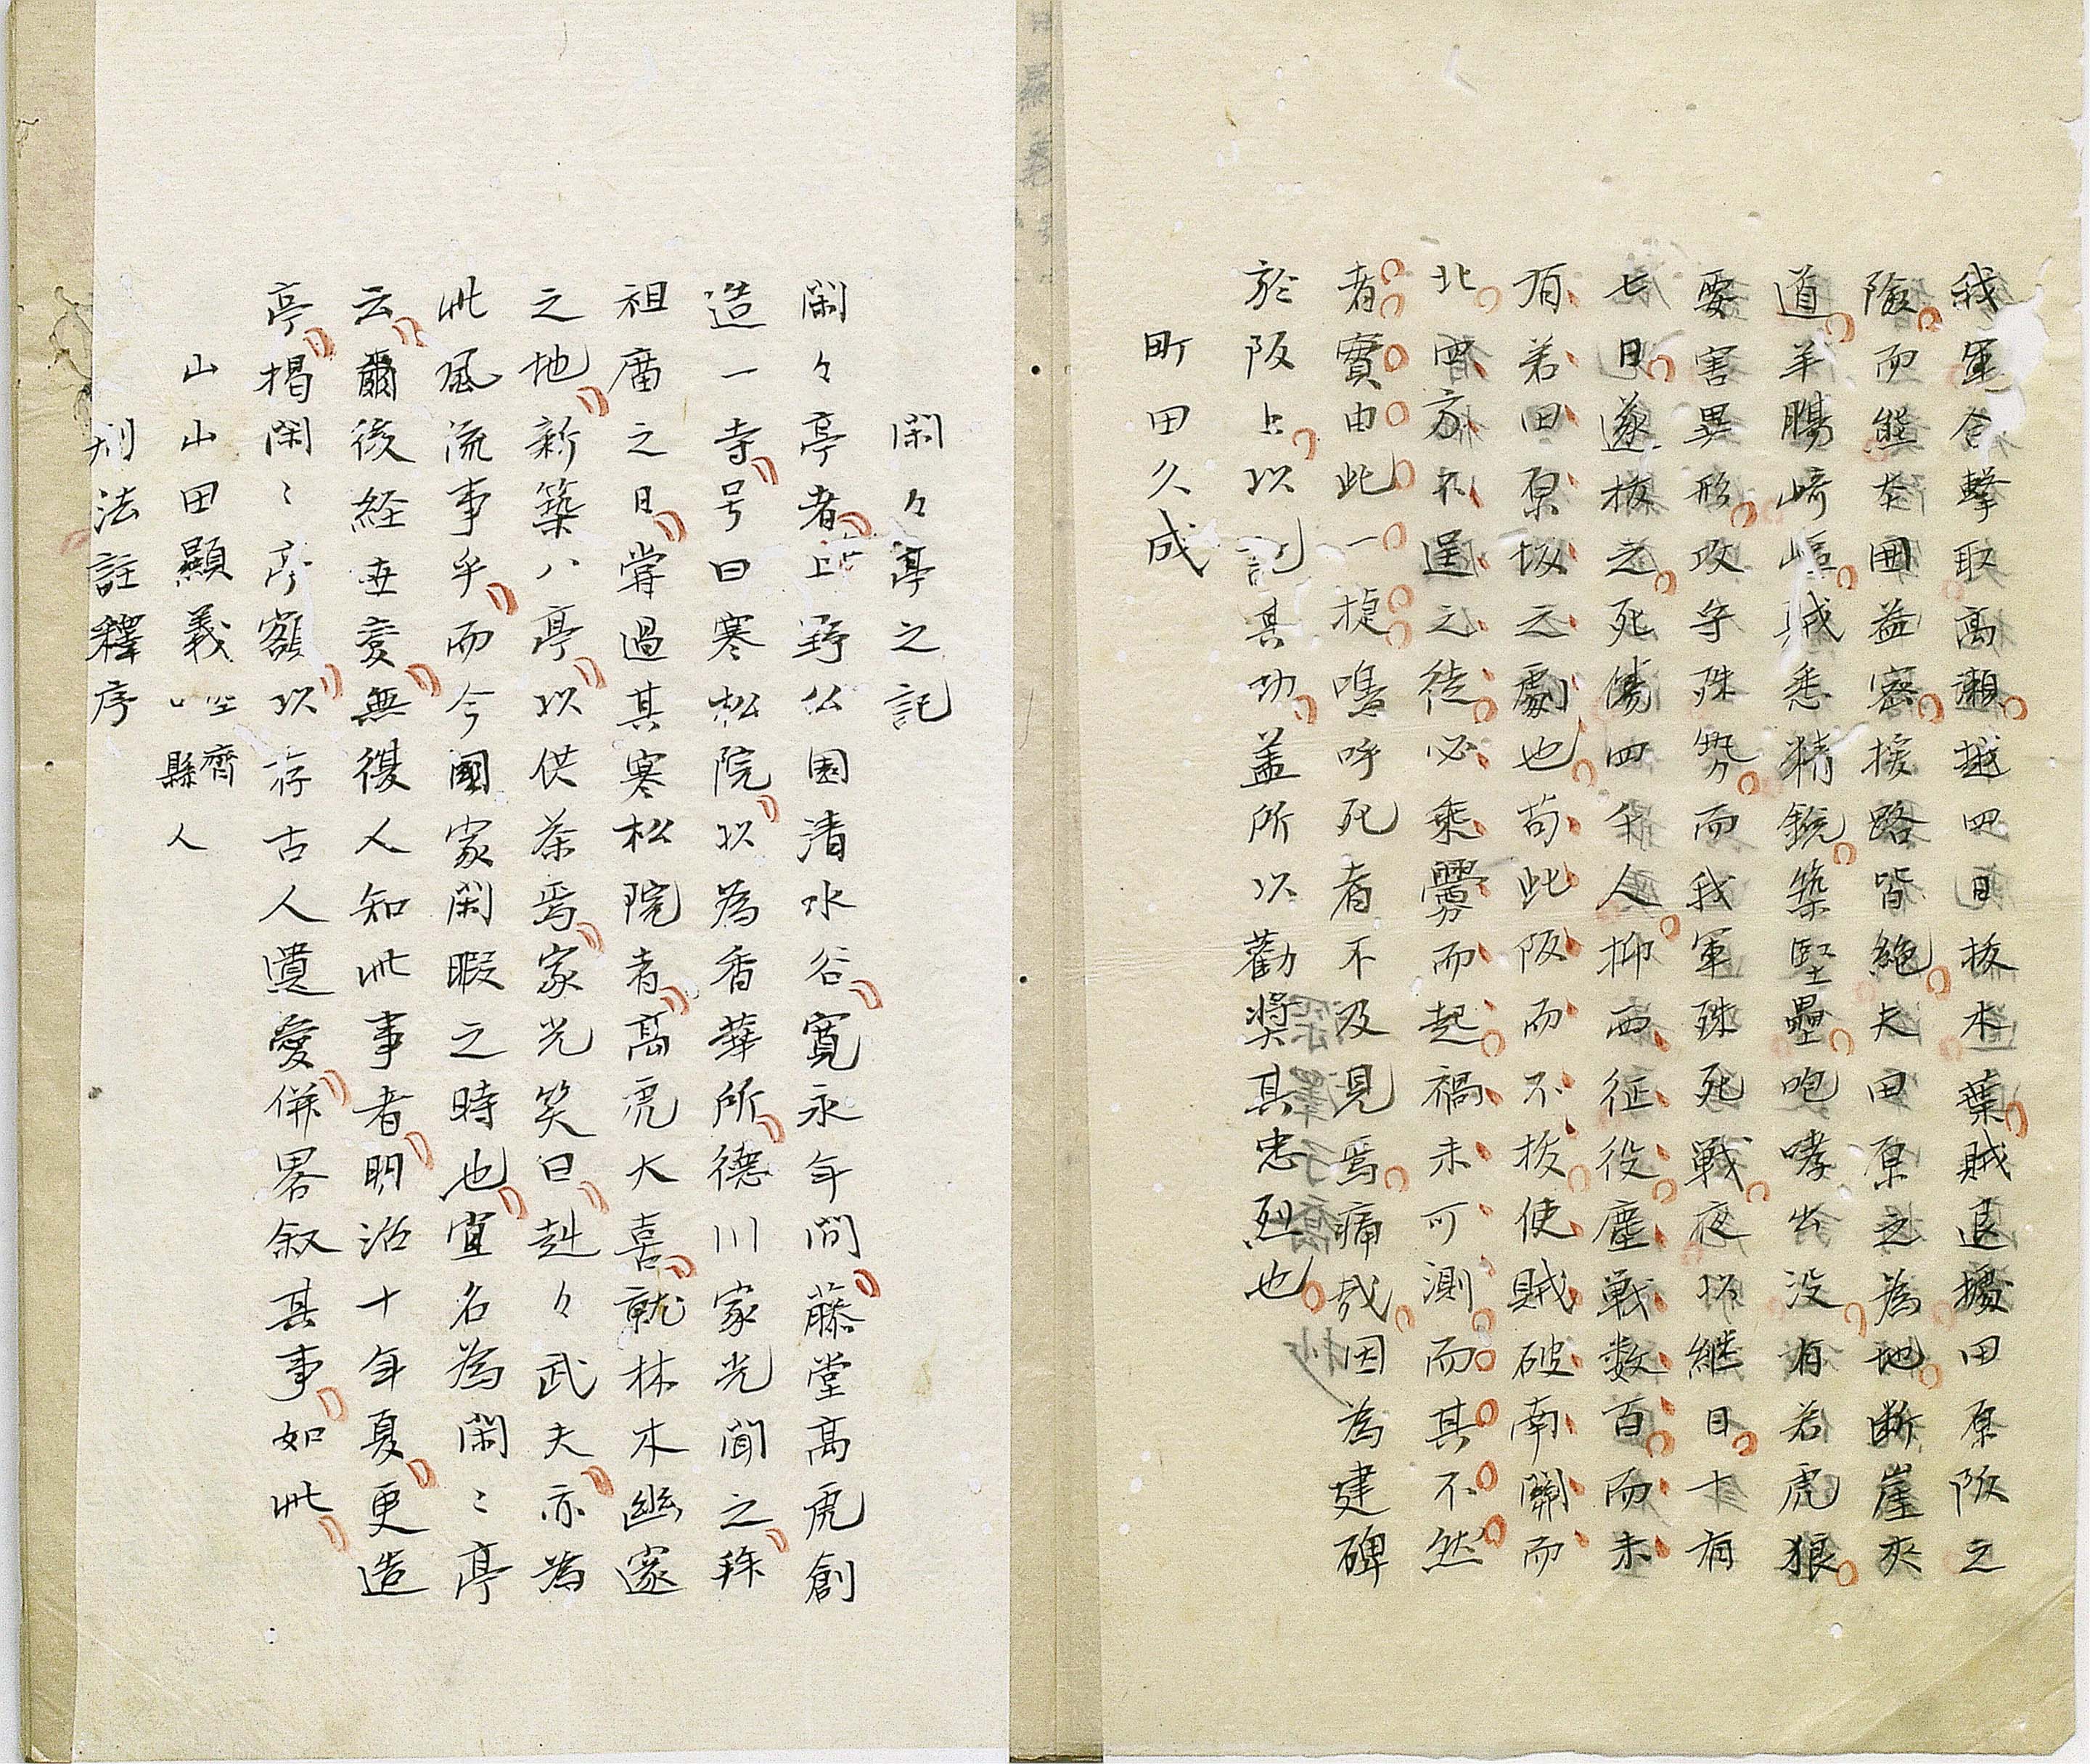 我軍合撃取高瀬越四日拔木葉賊退據田原阪之
險而熊本囲益密援路皆絶夫田原之為地断崖夾
道羊膓崎嶇賊悉精鋭築堅壘咆哮出没有若虎狼
要害異形攻守殊勢而我軍殊死戦夜以継日十有
七日遂拔之死傷四千人抑西征役塵戦数百而未
有若田原坂之劇也苟此阪而不拔使賊破南關而
北四方不逞之徒必乘釁而起禍未可測而其不然
者實由此一捷嗚呼死者不及見焉痛哉因為建碑
於阪上以記其功盖所以勸奨其忠烈也
町田久成
閑々亭之記
閑々亭者上野公園清水谷寛永年間藤堂高虎創
造一寺号曰寒松院以為香華所德川家光聞之称
祖廣之日嘗過其寒松院者高虎大喜就林木幽邃
之地新築八亭以供茶焉家光笑曰赳々武夫亦為
此風流事乎而今國家閑暇之時也宜名為閑〻亭
云爾後経世変無復人知此事者明治十年夏更造
亭揭閑〻亭額以存古人遺愛併畧叙其事如此
山山田顯義 空齊
山縣人
刑法註釋序